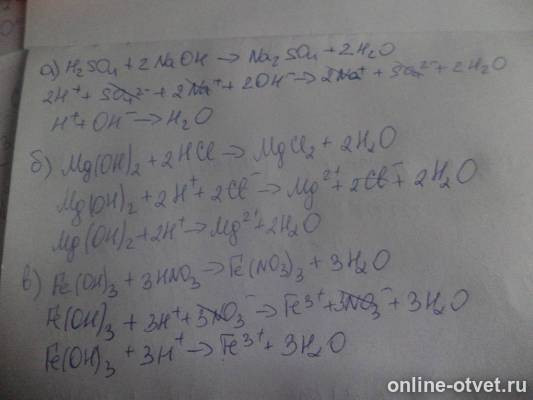 а) H₂SO₄ + 2NaOH → Na₂SO₄ + 2H₂O
2H⁺ + SO₄²⁻ + 2Na⁺ + 2OH⁻ → 2Na⁺ + SO₄²⁻ + 2H₂O
H⁺ + OH⁻ → H₂O
б) Mg(OH)₂ + 2HCl → MgCl₂ + 2H₂O
Mg(OH)₂ + 2H⁺ + 2Cl⁻ → Mg²⁺ + 2Cl⁻ + 2H₂O
Mg(OH)₂ + 2H⁺ → Mg²⁺ + 2H₂O
в) Fe(OH)₃ + 3HNO₃ → Fe(NO₃)₃ + 3H₂O
Fe(OH)₃ + 3H⁺ + 3NO₃⁻ → Fe³⁺ + 3NO₃⁻ + 3H₂O
Fe(OH)₃ + 3H⁺ → Fe³⁺ + 3H₂O
online-otvet.ru